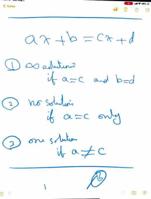 ax+b=cx+d
① ∞ solutions
if a=c and b=d
② no solution
if a=c only
③ one solution
if a≠c